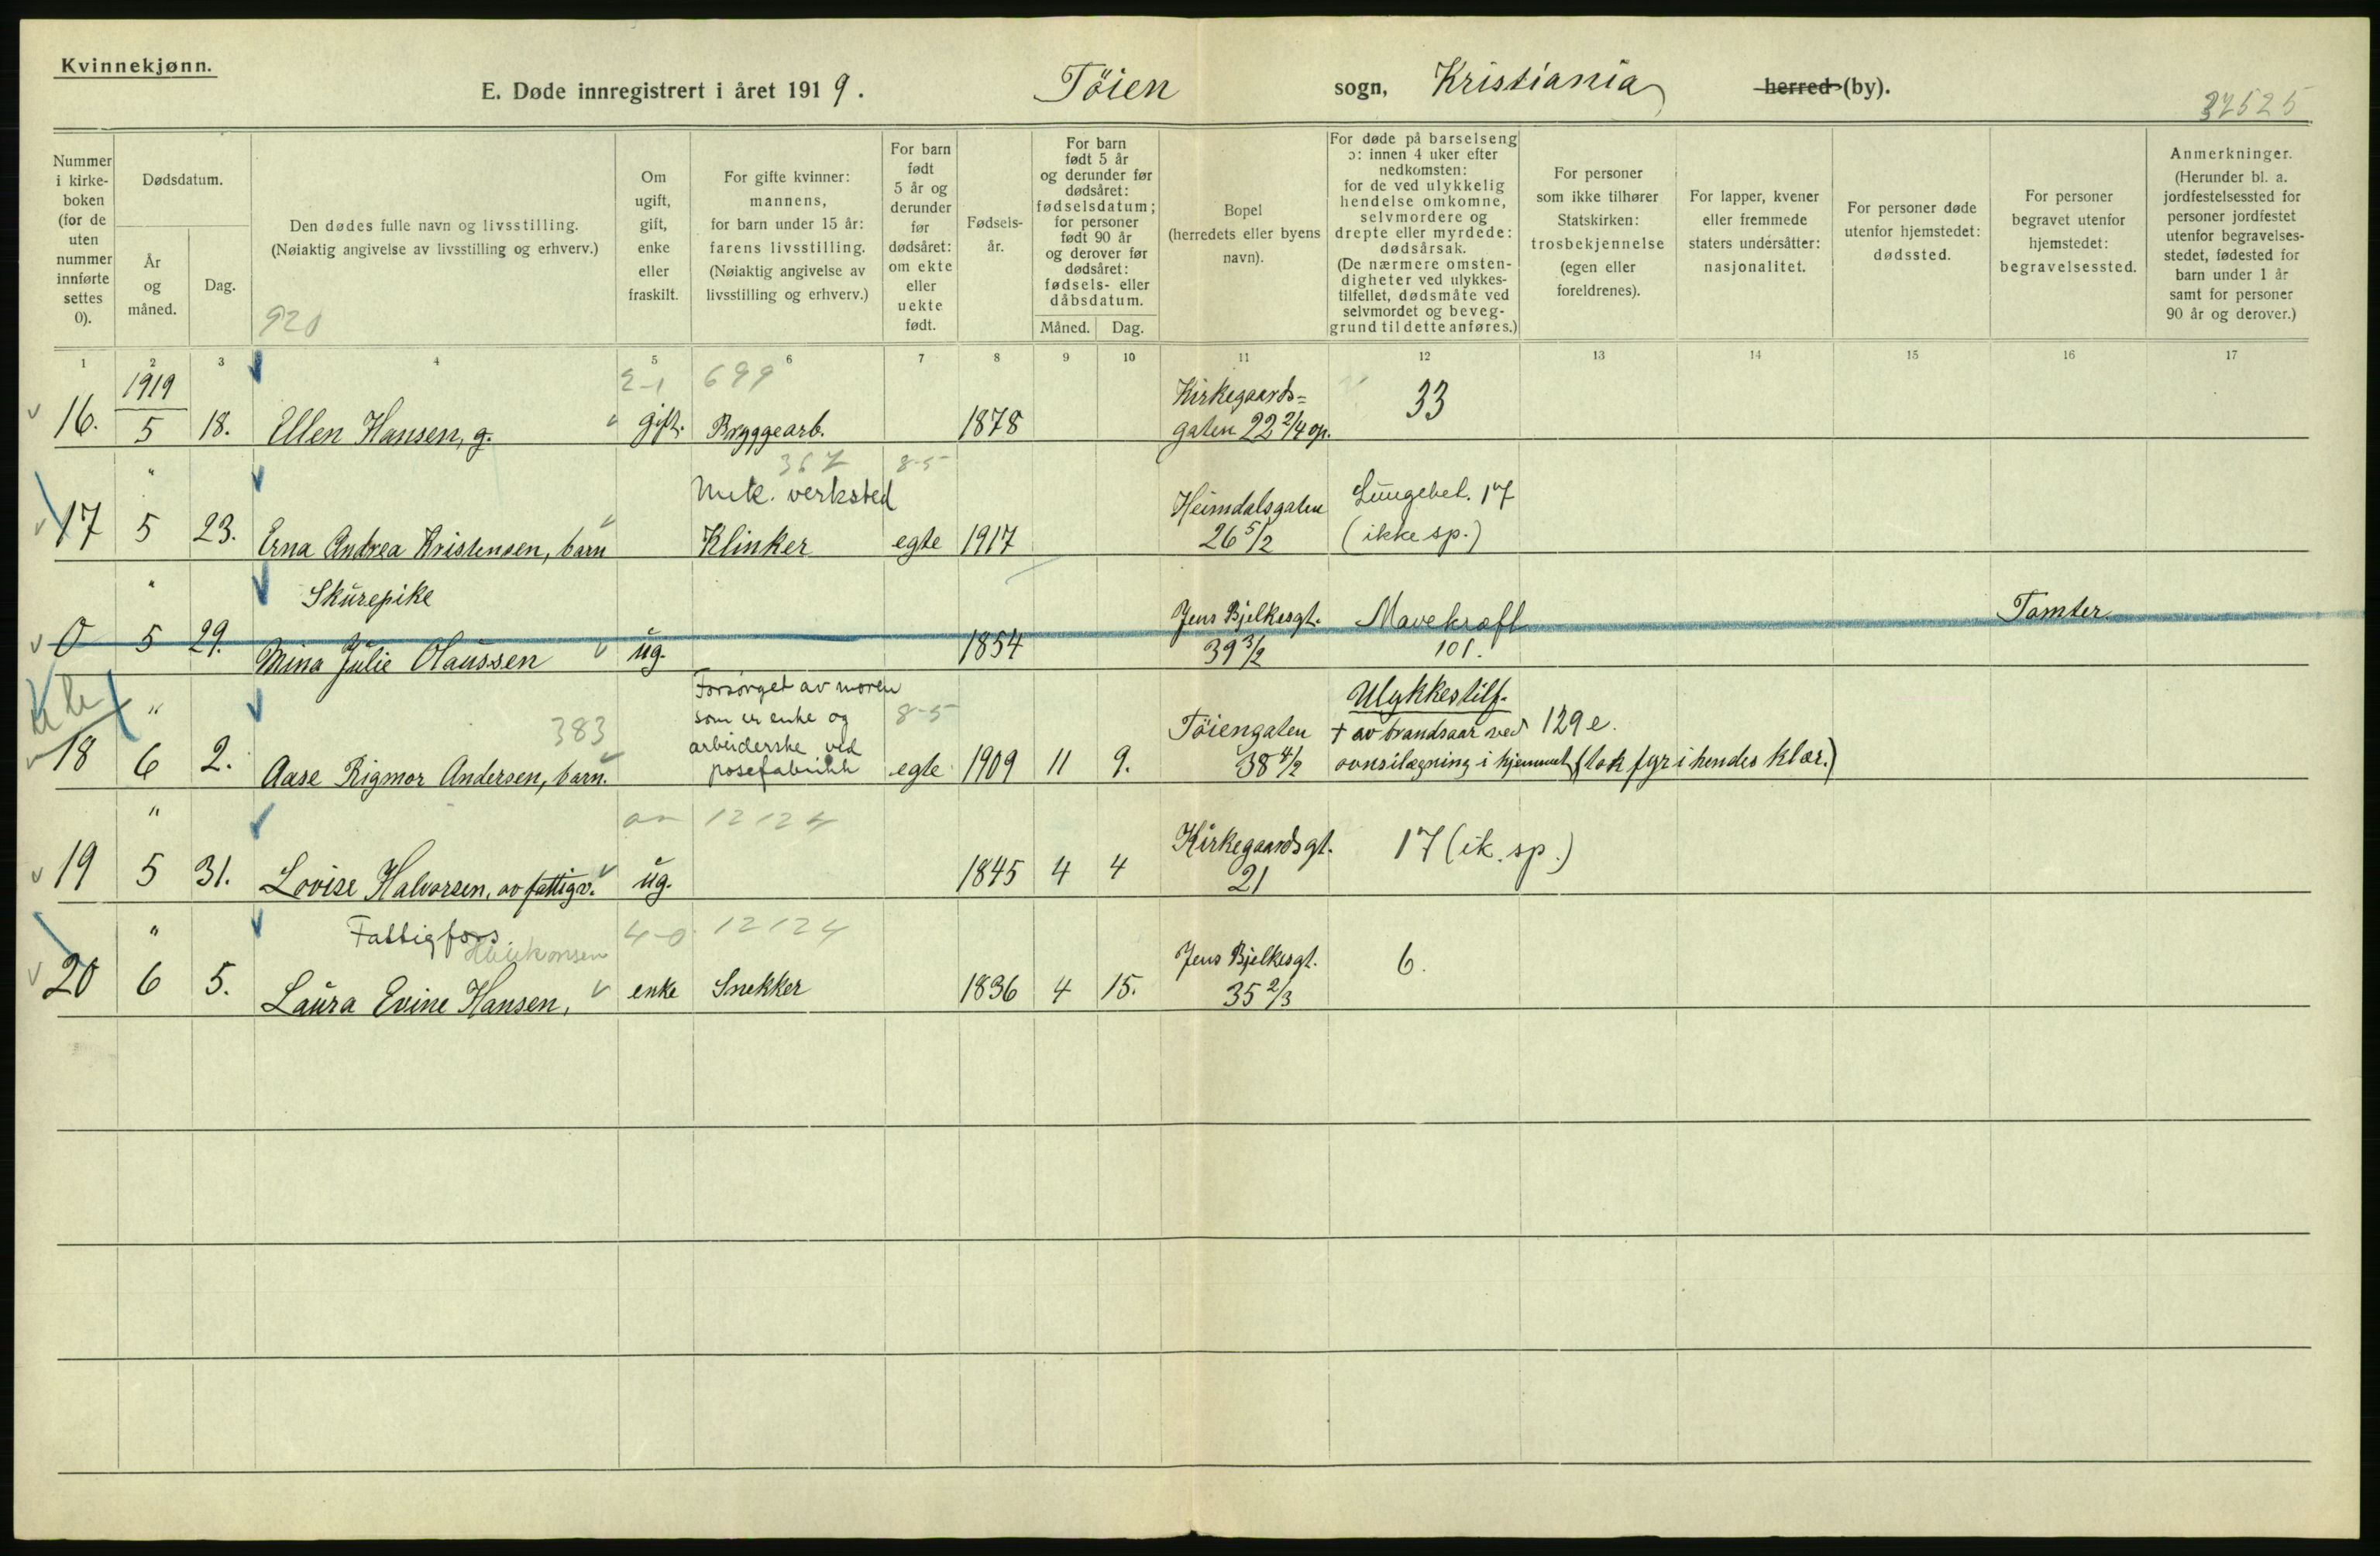 Kvinnekjønn.
E. Døde innregistrert i året 1919. Töien sogn, Kristiania herred (by).
37525
Nummer
i kirke-
boken
(for de
uten
nummer
innførte
settes
0).
Dødsdatum.
År
og
måned.
Dag.
Den dødes fulle navn og livsstilling.
(Nøiaktig angivelse av livsstilling og erhverv.)
920
Om
ugift,
gift,
enke
eller
fraskilt.
For gifte kvinner:
mannens,
for barn under 15 år:
farens livsstilling.
(Nøiaktig angivelse av
livsstilling og erhverv.)
For barn
født
5 år og
derunder
før
dødsåret:
om ekte
eller
uekte
født.
Fødsels-
år.
For barn
født 5 år
og derunder før
dødsåret:
fødselsdatum;
for personer
født 90 år
og derover før
dødsåret:
fødsels- eller
dåbsdatum.
Måned. Dag.
Bopel
(herredets eller byens
navn).
For døde på barselseng
ɔ: innen 4 uker efter
nedkomsten:
for de ved ulykkelig
hendelse omkomne,
selvmordere og
drepte eller myrdede:
dødsårsak.
(De nærmere omsten-
digheter ved ulykkes-
tilfellet, dødsmåte ved
selvmordet og beveg-
grund til dette anføres.)
For personer
som ikke tilhører
Statskirken:
trosbekjennelse
(egen eller
foreldrenes).
For lapper, kvener
eller fremmede
staters undersåtter:
nasjonalitet.
For personer døde
utenfor hjemstedet:
dødssted.
For personer
begravet utenfor
hjemstedet:
begravelsessted.
Anmerkninger.
(Herunder bl. a.
jordfestelsessted for
personer jordfestet
utenfor begravelses-
stedet, fødested for
barn under 1 år
samt for personer
90 år og derover.)
1 2 3 4 5 6 7 8 9 10 11 12 13 14 15 16 17
1919 2-1 699 Kirkegaards= 33
16. 5 18. Ellen Hansen, g. gift. Bryggearb. 1878 gaten 22 2/4 op.
" 367 8-5
Mek. verksted Heimdalsgaten Lungebet. 17
17 5 23. Erna Andrea Kristensen, barn Klinker egte 1917 26 5/2 (ikke sp.)
" Skurepike Jens Bjelkesgt. Mavekræft Tomter
0 5 29. Mina Julie Olaussen ug. 1854 39 3/2 101.
Forsørget av moren Ulykkestilf.
" 383 som er enke og 8-5 Töiengaten + av brandsaar ved 129 e.
arbeiderske ved
18 6 2. Aase Rigmor Andersen, barn. posefabrikk egte 1909 11 9. 38 4/2 ovnsilægning i hjemmet (tok fyr i hendes klær.)
" 12124 Kirkegaardsgt. 17 (ik. sp.)
19 5 31. Lovise Halvorsen, av fattigv. ug. 1845 4 4 21
" Fattigfors. 4-0 12124 Jens Bjelkesgt. 6.
20 6 5. Laura Evine Hansen, enke Snekker 1836 4 15. 35 2/3